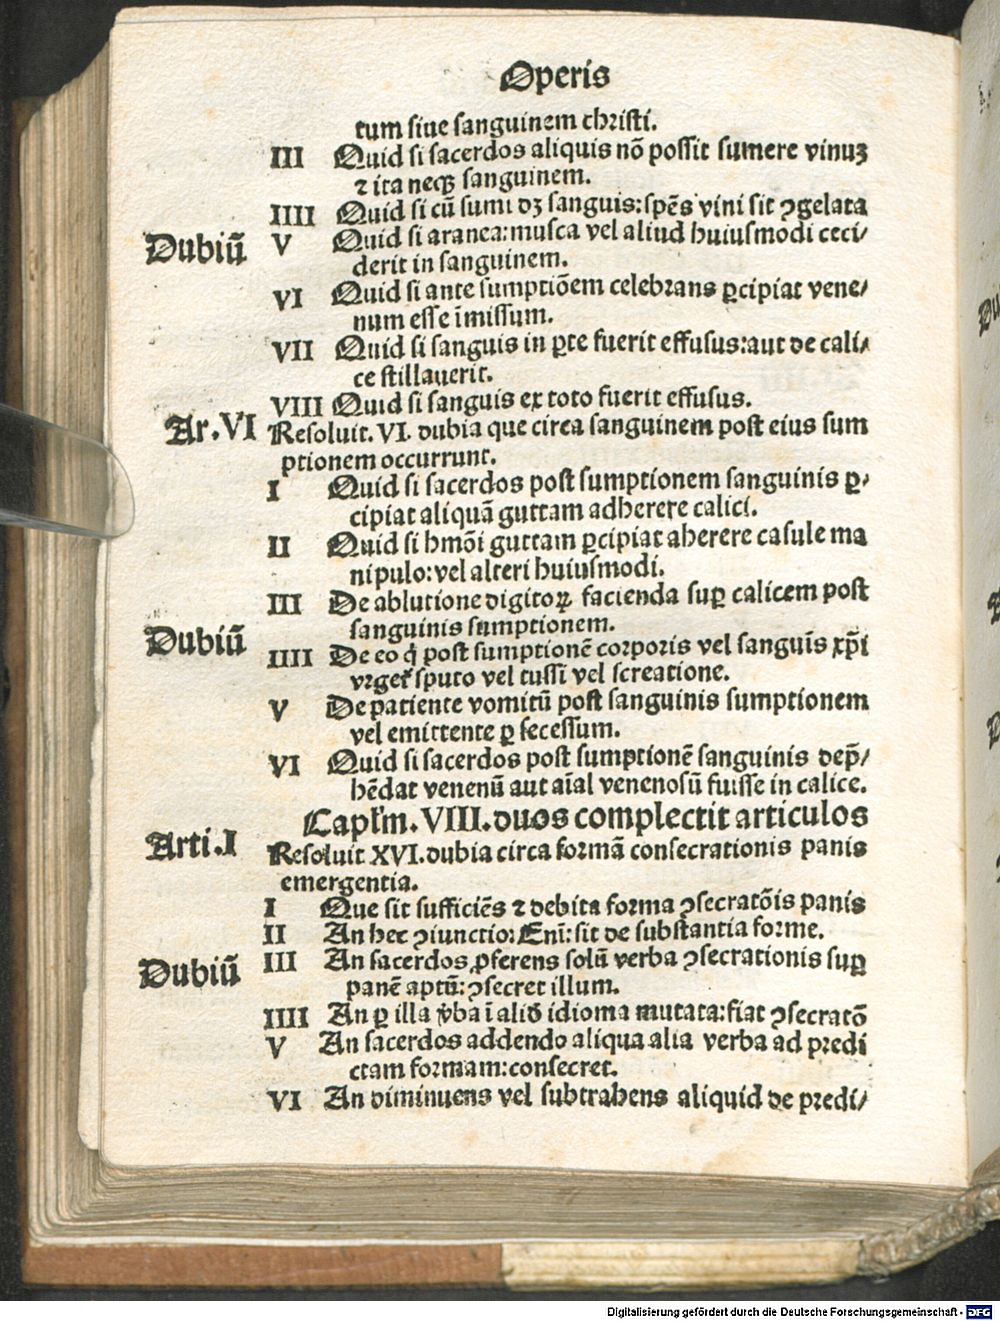 Operis
tum siue sanguinem christi.
III Quid si sacerdos aliquis nō possit sumere vinuꝫ
⁊ ita neqꝫ sanguinem.
IIII Quid si cū sumi dꝫ sanguis: spēs vini sit ꝯgelata
Dubiū V Quid si aranea: musca vel aliud huiusmodi ceci/
derit in sanguinem.
VI Quid si ante sumptiōem celebrans ꝑcipiat vene/
num esse īmissum.
VII Quid si sanguis in ꝑte fuerit effusus: aut de cali/
ce stillauerit.
VIII Quid si sanguis ex toto fuerit effusus.
Ar.VI Resoluit. VI. dubia que circa sanguinem post eius sum
ptionem occurrunt.
I Quid si sacerdos post sumptionem sanguinis ꝑ/
cipiat aliquā guttam adherere calici.
II Quid si hmōi guttam ꝑcipiat aherere casule ma
nipulo: vel alteri huiusmodi.
III De ablutione digitoꝝ facienda suꝑ calicem post
sanguinis sumptionem.
Dubiū
IIII De eo ꝙ post sumptionē corporis vel sanguīs xp̄i
vrget᷑ sputo vel tussi vel screatione.
V De patiente vomitū post sanguinis sumptionem
vel emittente ꝑ secessum.
VI Quid si sacerdos post sumptionē sanguinis dep̄/
hēdat venenū aut aīal venenosū fuisse in calice.
Capł'm. VIII. duos complectit articulos
Arti.I Resoluit XVI. dubia circa formā consecrationis panis
emergentia.
I Que sit sufficiēs ⁊ debita forma ꝯsecratōis panis
II An hec ꝯiunctio: Enī: sit de substantia forme.
Dubiū III An sacerdos ꝓferens solū verba ꝯsecrationis suꝑ
panē aptū: ꝯsecret illum.
IIII An ꝑ illa v̄ba ī alio idioma mutata: fiat ꝯsecratō
V An sacerdos addendo aliqua alia verba ad predi
ctam formam: consecret.
VI An diminuens vel subtrahens aliquid de predi/
Digitalisierung gefördert durch die Deutsche Forschungsgemeinschaft - DFG